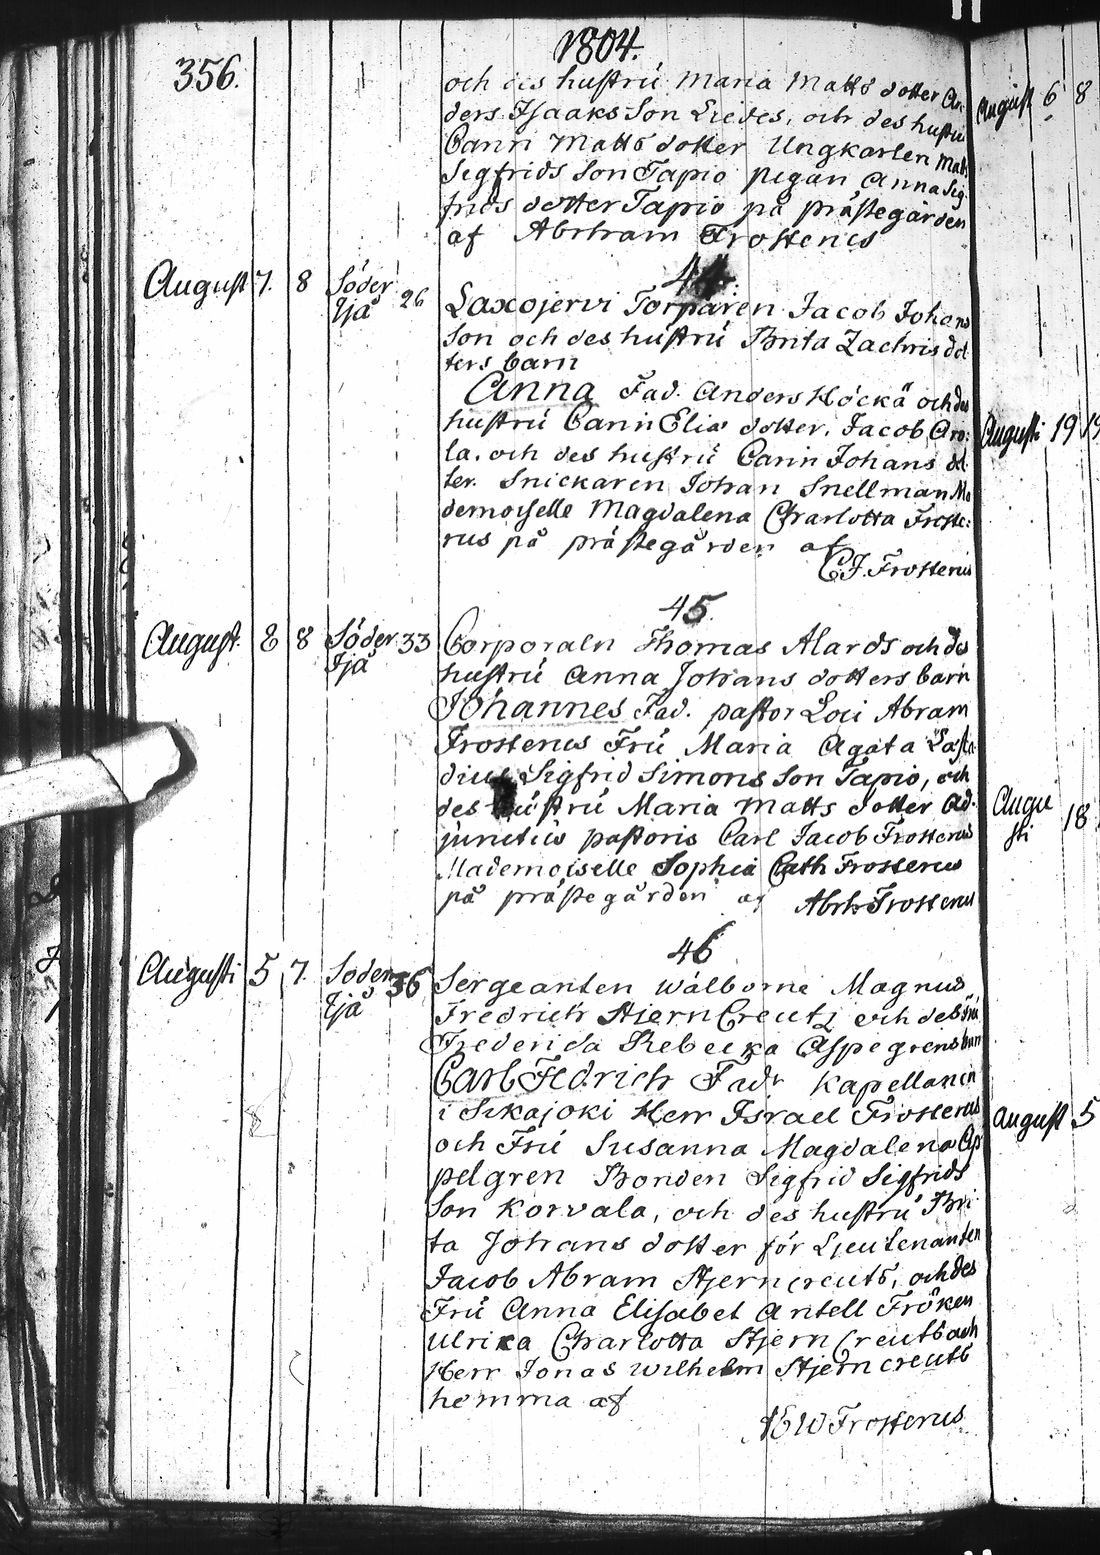 356.
1804.
och des hustru Maria Matts dotter An
ders Isaaks Son Liedes, och des hustru
Carin Matts dotter Ungkarlen Matts
Sigfrids Son Tapio pigan Anna Sig
frids dotter Tapio på prästegården
af Abrham Frosterus
44.
August 7. 8 Söder 26 Laxojervi Torparen Jacob Johans
Tjä Son och des hustru Brita Zachris dot
ters barn
Anna Fad. Anders Höckä och des
hustru Carin Elia dotter. Jacob Aro:
la. och des hustru Carin Johans dot
ter. Snickaren Johan Snellman Ma
demoiselle Magdalena Charlotta Froste:
rus på prästegården af
C.J. Frosterus
45.
August. 8 8 Söder 33 Corporaln Thomas Alards och des
Tjä hustru Anna Johans dotters barn
Johannes Fad. pastor Loci Abram
Frosterus Fru Maria Agata Lasta
dius Sigfrid Simons Son Tapio, och
des hustru Maria Matts dotter Ad-
junctus pastoris Carl Jacob Frosterus
Mademoiselle Sophia Cath Frosterus
på prästegården af Abrh Frosterus
46
Augusti 5 7. Söder 36 Sergeanten Wälborne Magnus
Tjä Fredrich StjernCreutz och des fru
Frederica Rebecka Aspegrens barn
Carl Fedrich Fadr Kapellanen
i Sikajoki Herr Israel Frosterus
och Fru Susanna Magdalena Ap
pelgren Bonden Sigfrid Sigfrids
Son Korvala, och des hustru Bri
ta Johans dotter för Lieutenanten
Jacob Abram Stjerncreuts, och des
Fru Anna Elisabet Antell Fröken
Ulrica Charlotta StjernCreuts och
Herr Jonas Wilhelm Stjerncreuts
hemma af
Frosterus
August 6 8
Augusti 19
Augu 18
sti
August 5